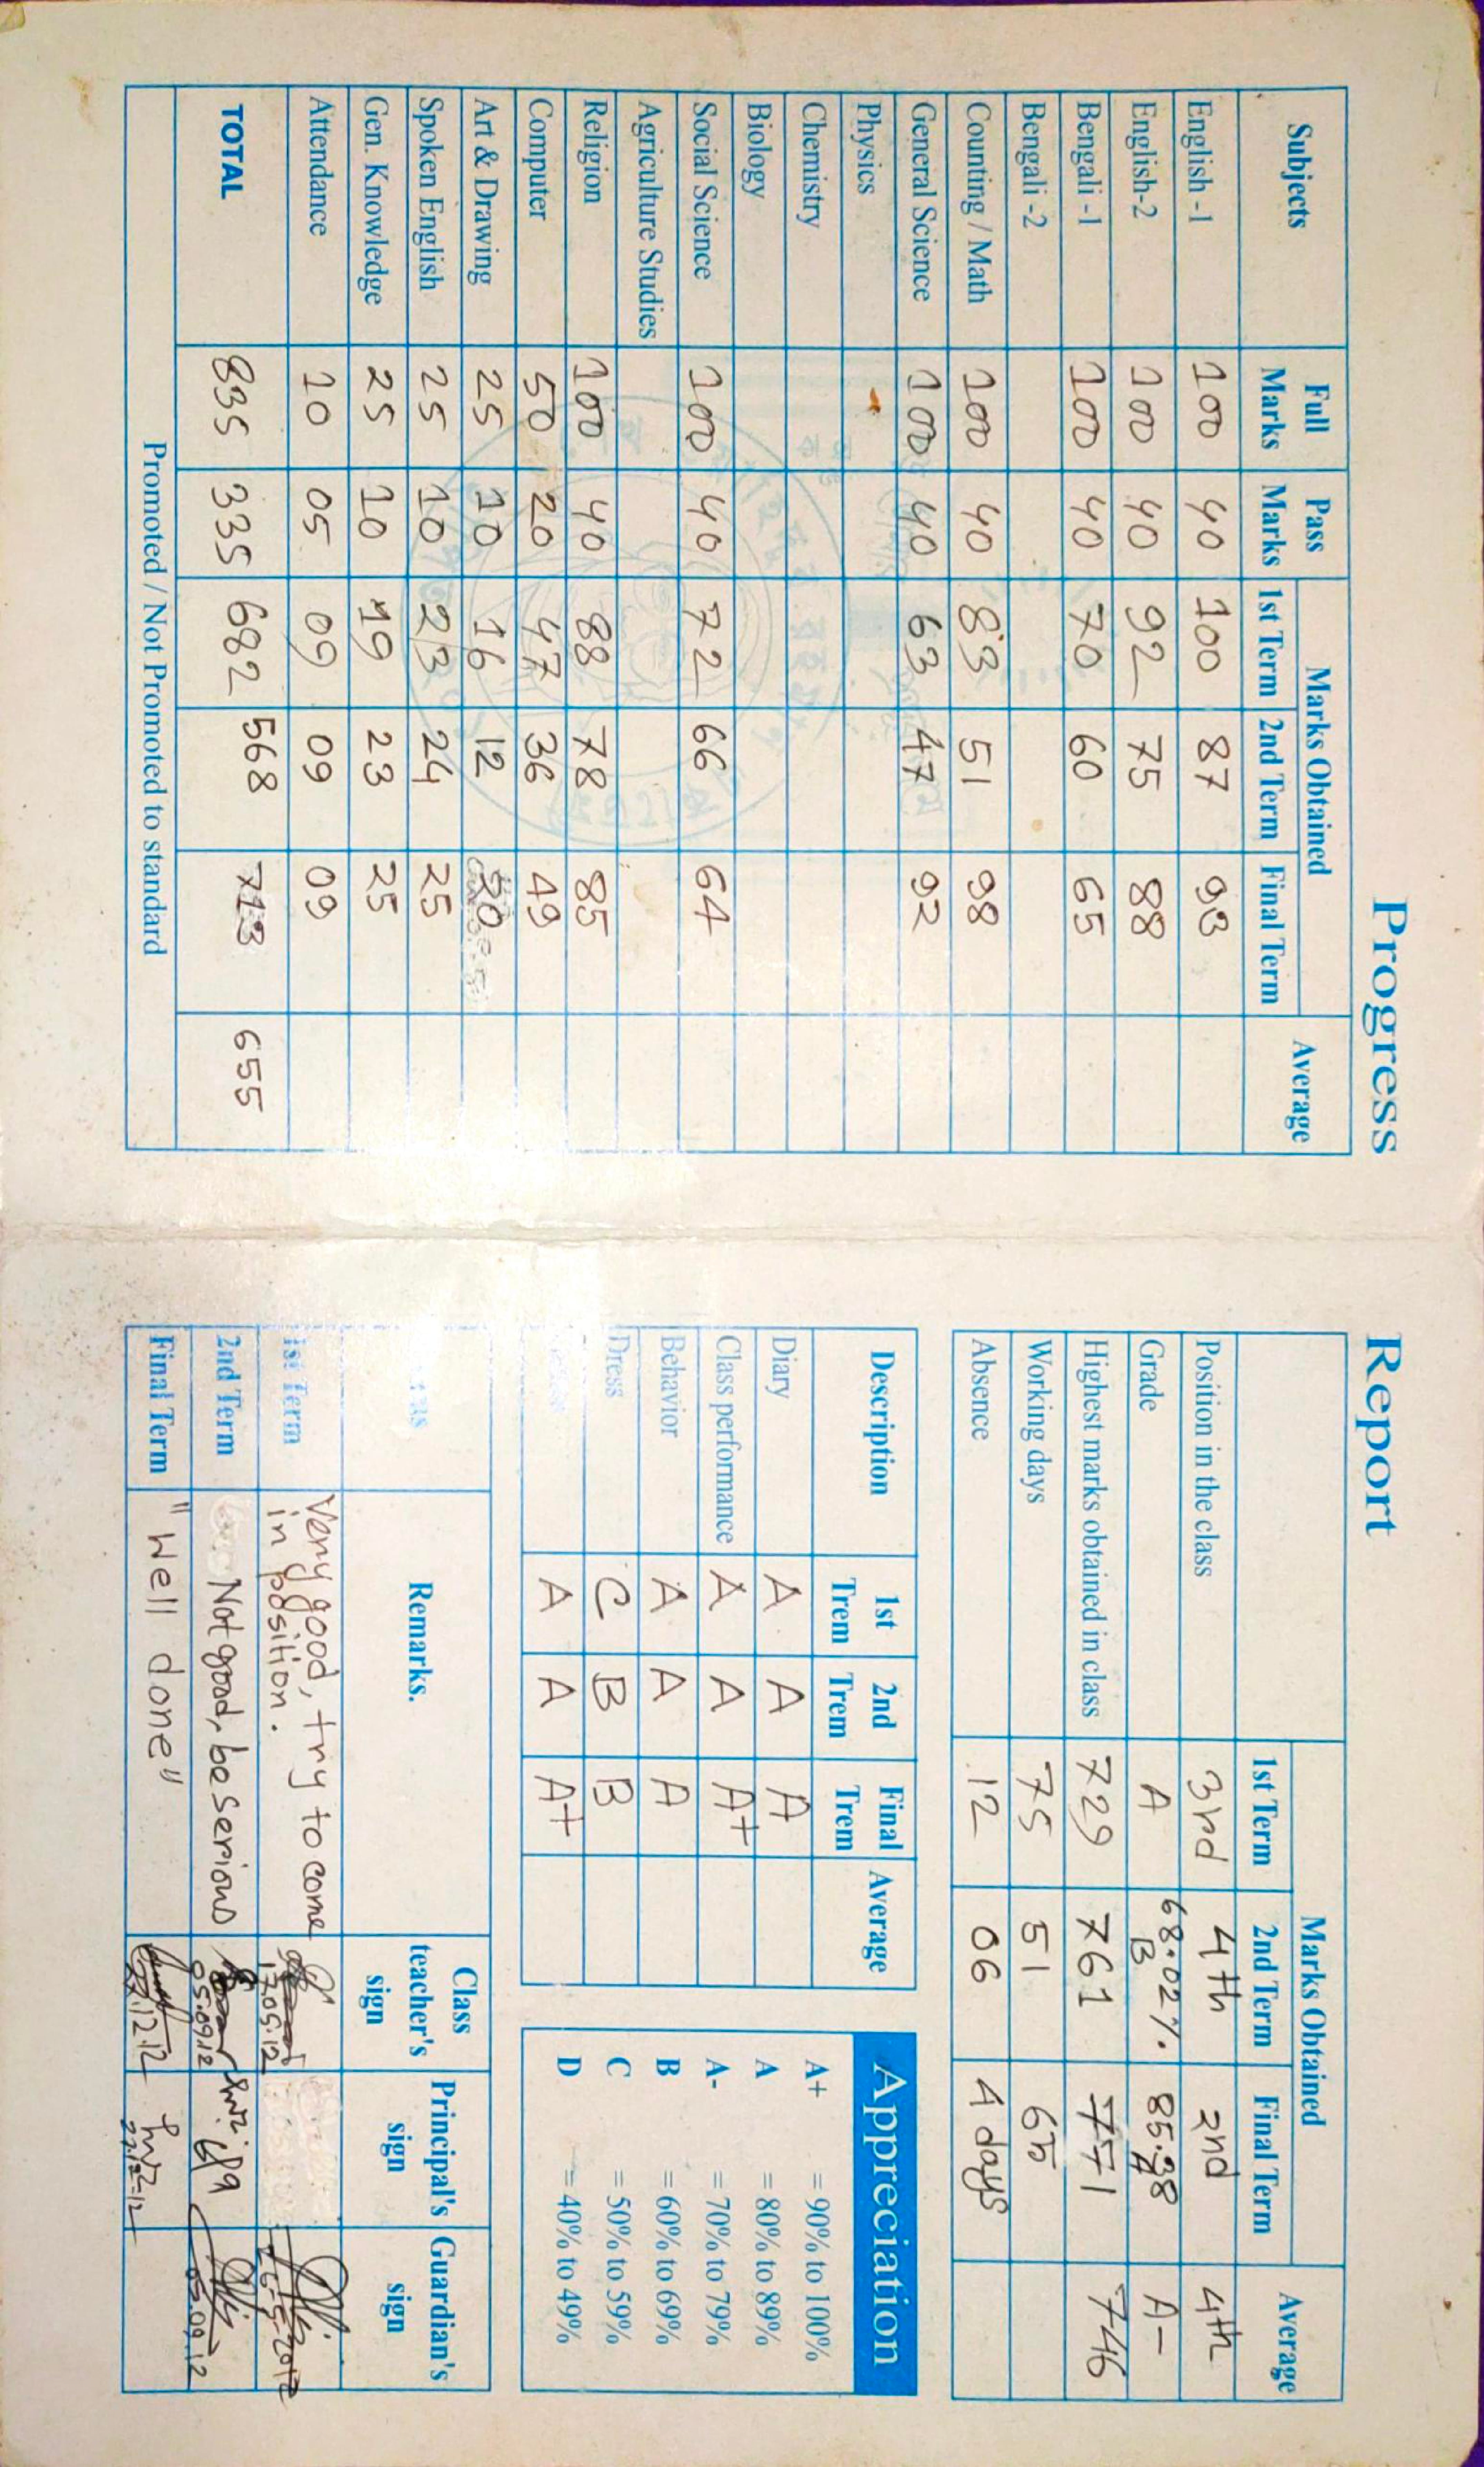 Progress Report
Subjects Full Marks Pass Marks Marks Obtained Average
1st Term 2nd Term Final Term
English -1 100 40 100 87 93
English-2 100 40 92 75 88
Bengali -1 100 40 70 60 65
Bengali -2
Counting / Math 100 40 83 51 98
General Science 100 40 63 47 92
Physics
Chemistry
Biology
Social Science 100 40 72 66 64
Agriculture Studies
Religion 100 40 88 78 85
Computer 50 20 47 36 49
Art & Drawing 25 10 16 12 20
Spoken English 25 10 23 24 25
Gen. Knowledge 25 10 19 23 25
Attendance 10 05 09 09 09
TOTAL 835 335 682 568 713 655
Promoted / Not Promoted to standard
Marks Obtained Average
1st Term 2nd Term Final Term
Position in the class 3rd 4th 2nd 4th
Grade A 68.02% B 85.38 A A-
Highest marks obtained in class 729 761 771 746
Working days 75 51 65
Absence 12 06 4 days
Description 1st Trem 2nd Trem Final Trem Average
Diary A A A
Class performance A A A+
Behavior A A A
Dress C B B
A A A+
Appreciation
A+ = 90% to 100%
A = 80% to 89%
A- = 70% to 79%
B = 60% to 69%
C = 50% to 59%
D = 40% to 49%
Remarks. Class teacher's sign Principal's sign Guardian's sign
1st Term Very good, try to come in position. 17.05.12 26-5-2012
2nd Term Not good, be serious 05.09.12 05.09.12
Final Term "Well done" 27.12.12 27.12.12